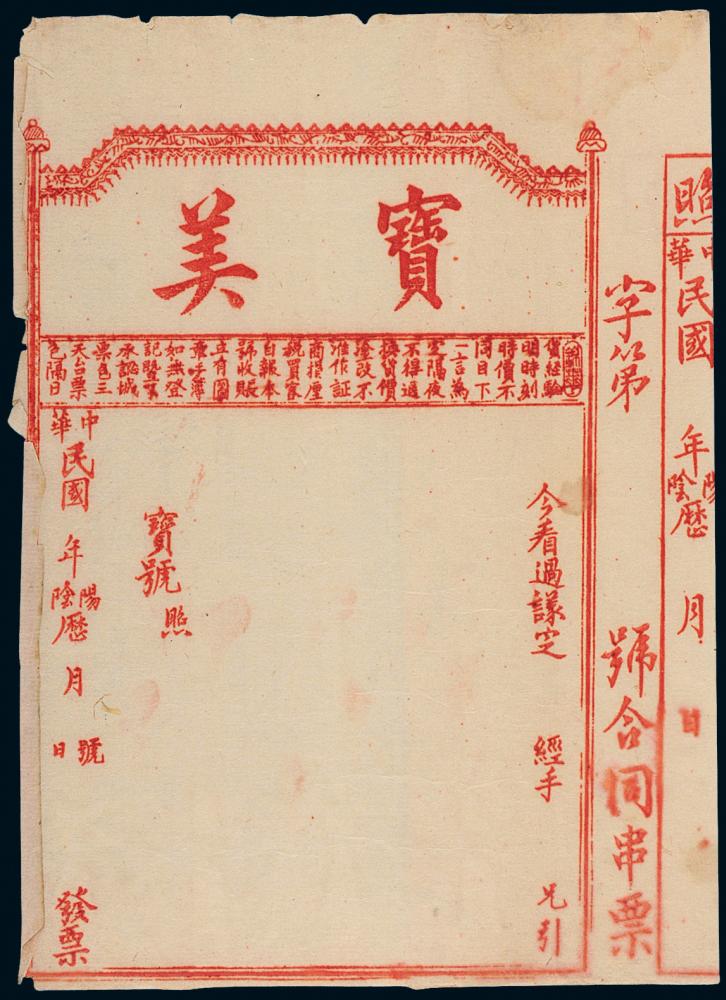 照
中華民國　年陰陽歷　月　日
字第　號合同串票
寶美
貨經驗
明時刻
時價不
同目下
一言為
定隔夜
不得退
換貨價
塗改不
准作証
商指厘
稅買家
自報本
號收賬
立有圖
章手簿
如無登
承認城
票包三
天台票
包隔日
今看過議定　經手　兄引
寶號照
中華民國　年陰陽歷　月　日號　發票